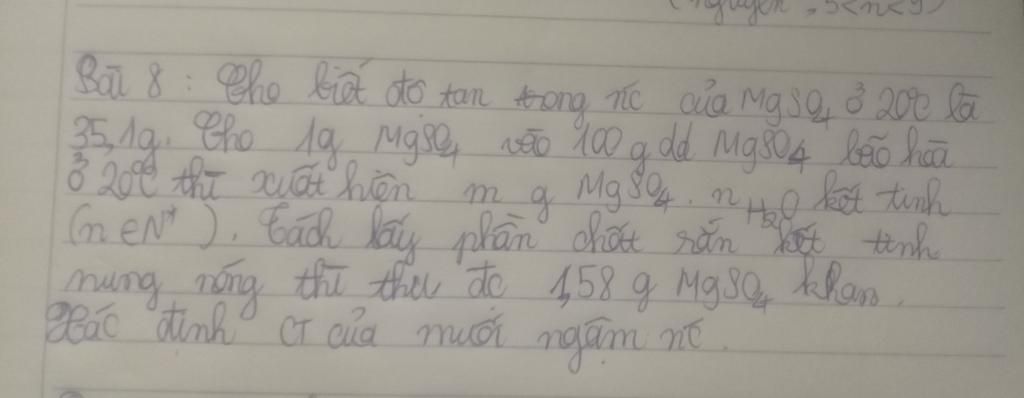 (nguyên, 5<n<9)
Bài 8 : Cho biết độ tan trong nc của MgSO4 ở 20°C là
35,1g. Cho 1g MgSO4 vào 100 g dd MgSO4 bão hòa
ở 20°C thì xuất hiện m g MgSO4. nH2O kết tinh
(n ∈ N*). Tách lấy phần chất rắn kết tinh
nung nóng thì thu đc 1,58 g MgSO4 khan.
Xác định CT của muối ngậm nc.